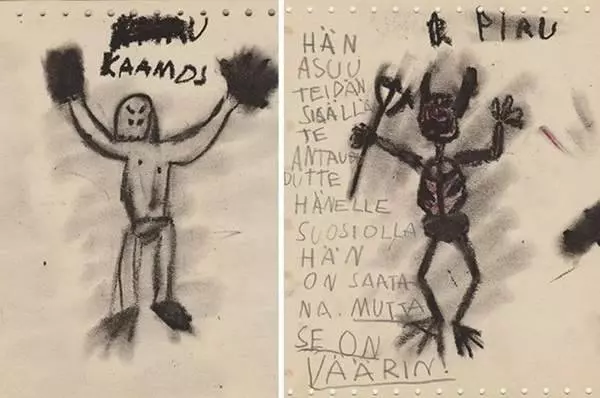 KAAMOS
PIRU
HÄN
ASUU
TEIDÄN
SISÄLLÄ
TE
ANTAU
DUTTE
HÄNELLE
SUOSIOLLA
HÄN
ON SAATA
NA. MUTTA
SE ON
VÄÄRIN!